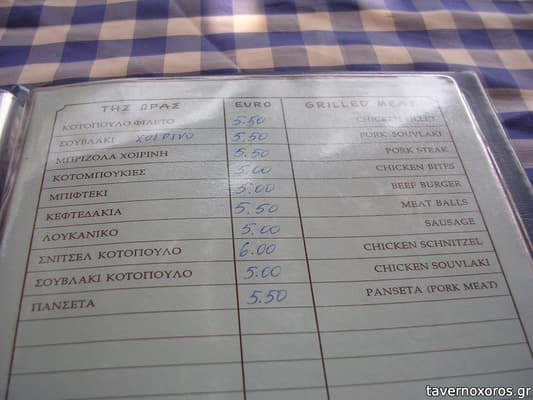 ΤΗΣ ΩΡΑΣ EURO GRILLED MEAT
ΚΟΤΟΠΟΥΛΟ ΦΙΛΕΤΟ 5.50 CHICKEN FILLET
ΣΟΥΒΛΑΚΙ ΧΟΙΡΙΝΟ 5.50 PORK SOUVLAKI
ΜΠΡΙΖΟΛΑ ΧΟΙΡΙΝΗ 5.50 PORK STEAK
ΚΟΤΟΜΠΟΥΚΙΕΣ 5.00 CHICKEN BITES
ΜΠΙΦΤΕΚΙ 5.00 BEEF BURGER
ΚΕΦΤΕΔΑΚΙΑ 5.50 MEAT BALLS
ΛΟΥΚΑΝΙΚΟ 5.00 SAUSAGE
ΣΝΙΤΣΕΛ ΚΟΤΟΠΟΥΛΟ 6.00 CHICKEN SCHNITZEL
ΣΟΥΒΛΑΚΙ ΚΟΤΟΠΟΥΛΟ 5.00 CHICKEN SOUVLAKI
ΠΑΝΣΕΤΑ 5.50 PANSETA (PORK MEAT)
tavernoxoros.gr